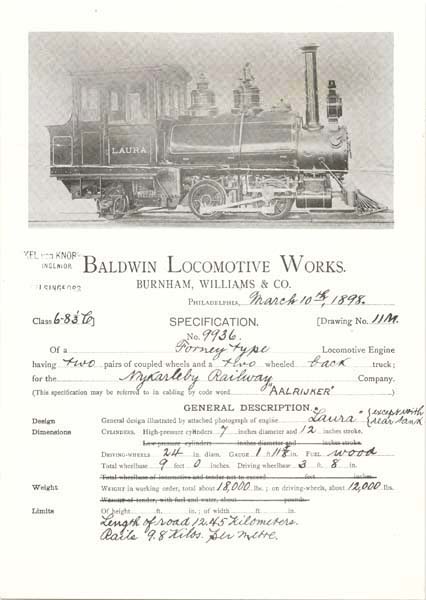 LAURA
INGENIÖR
BALDWIN LOCOMOTIVE WORKS.
BURNHAM, WILLIAMS & CO.
PHILADELPHIA, March 10th, 1898.
Class 6-8⅓C] SPECIFICATION. [Drawing No. 11M.
No. 9936.
Of a Forney type Locomotive Engine
having two pairs of coupled wheels and a two wheeled back truck;
for the Nykarleby Railway Company.
(This specification may be referred to in cabling by code word "AALRIJKER")
GENERAL DESCRIPTION.
Design General design illustrated by attached photograph of engine "Laura" (except with rear tank
Dimensions CYLINDERS, High-pressure cylinders 7 inches diameter and 12 inches stroke.
Low-pressure cylinders inches diameter and inches stroke.
DRIVING-WHEELS 24 in. diam. GAUGE 1 ft 11⅝ in. FUEL wood
Total wheelbase 9 feet 0 inches. Driving wheelbase 3 ft. 8 in.
Total wheelbase of locomotive and tender not to exceed feet inches.
Weight WEIGHT in working order, total about 18,000 lbs.; on driving-wheels, about 12,000 lbs.
Weight of tender, with fuel and water, about pounds.
Limits Of height ft. in.; of width ft. in.
Length of road 12.45 Kilometers.
Rails 9.8 Kilos. per metre.